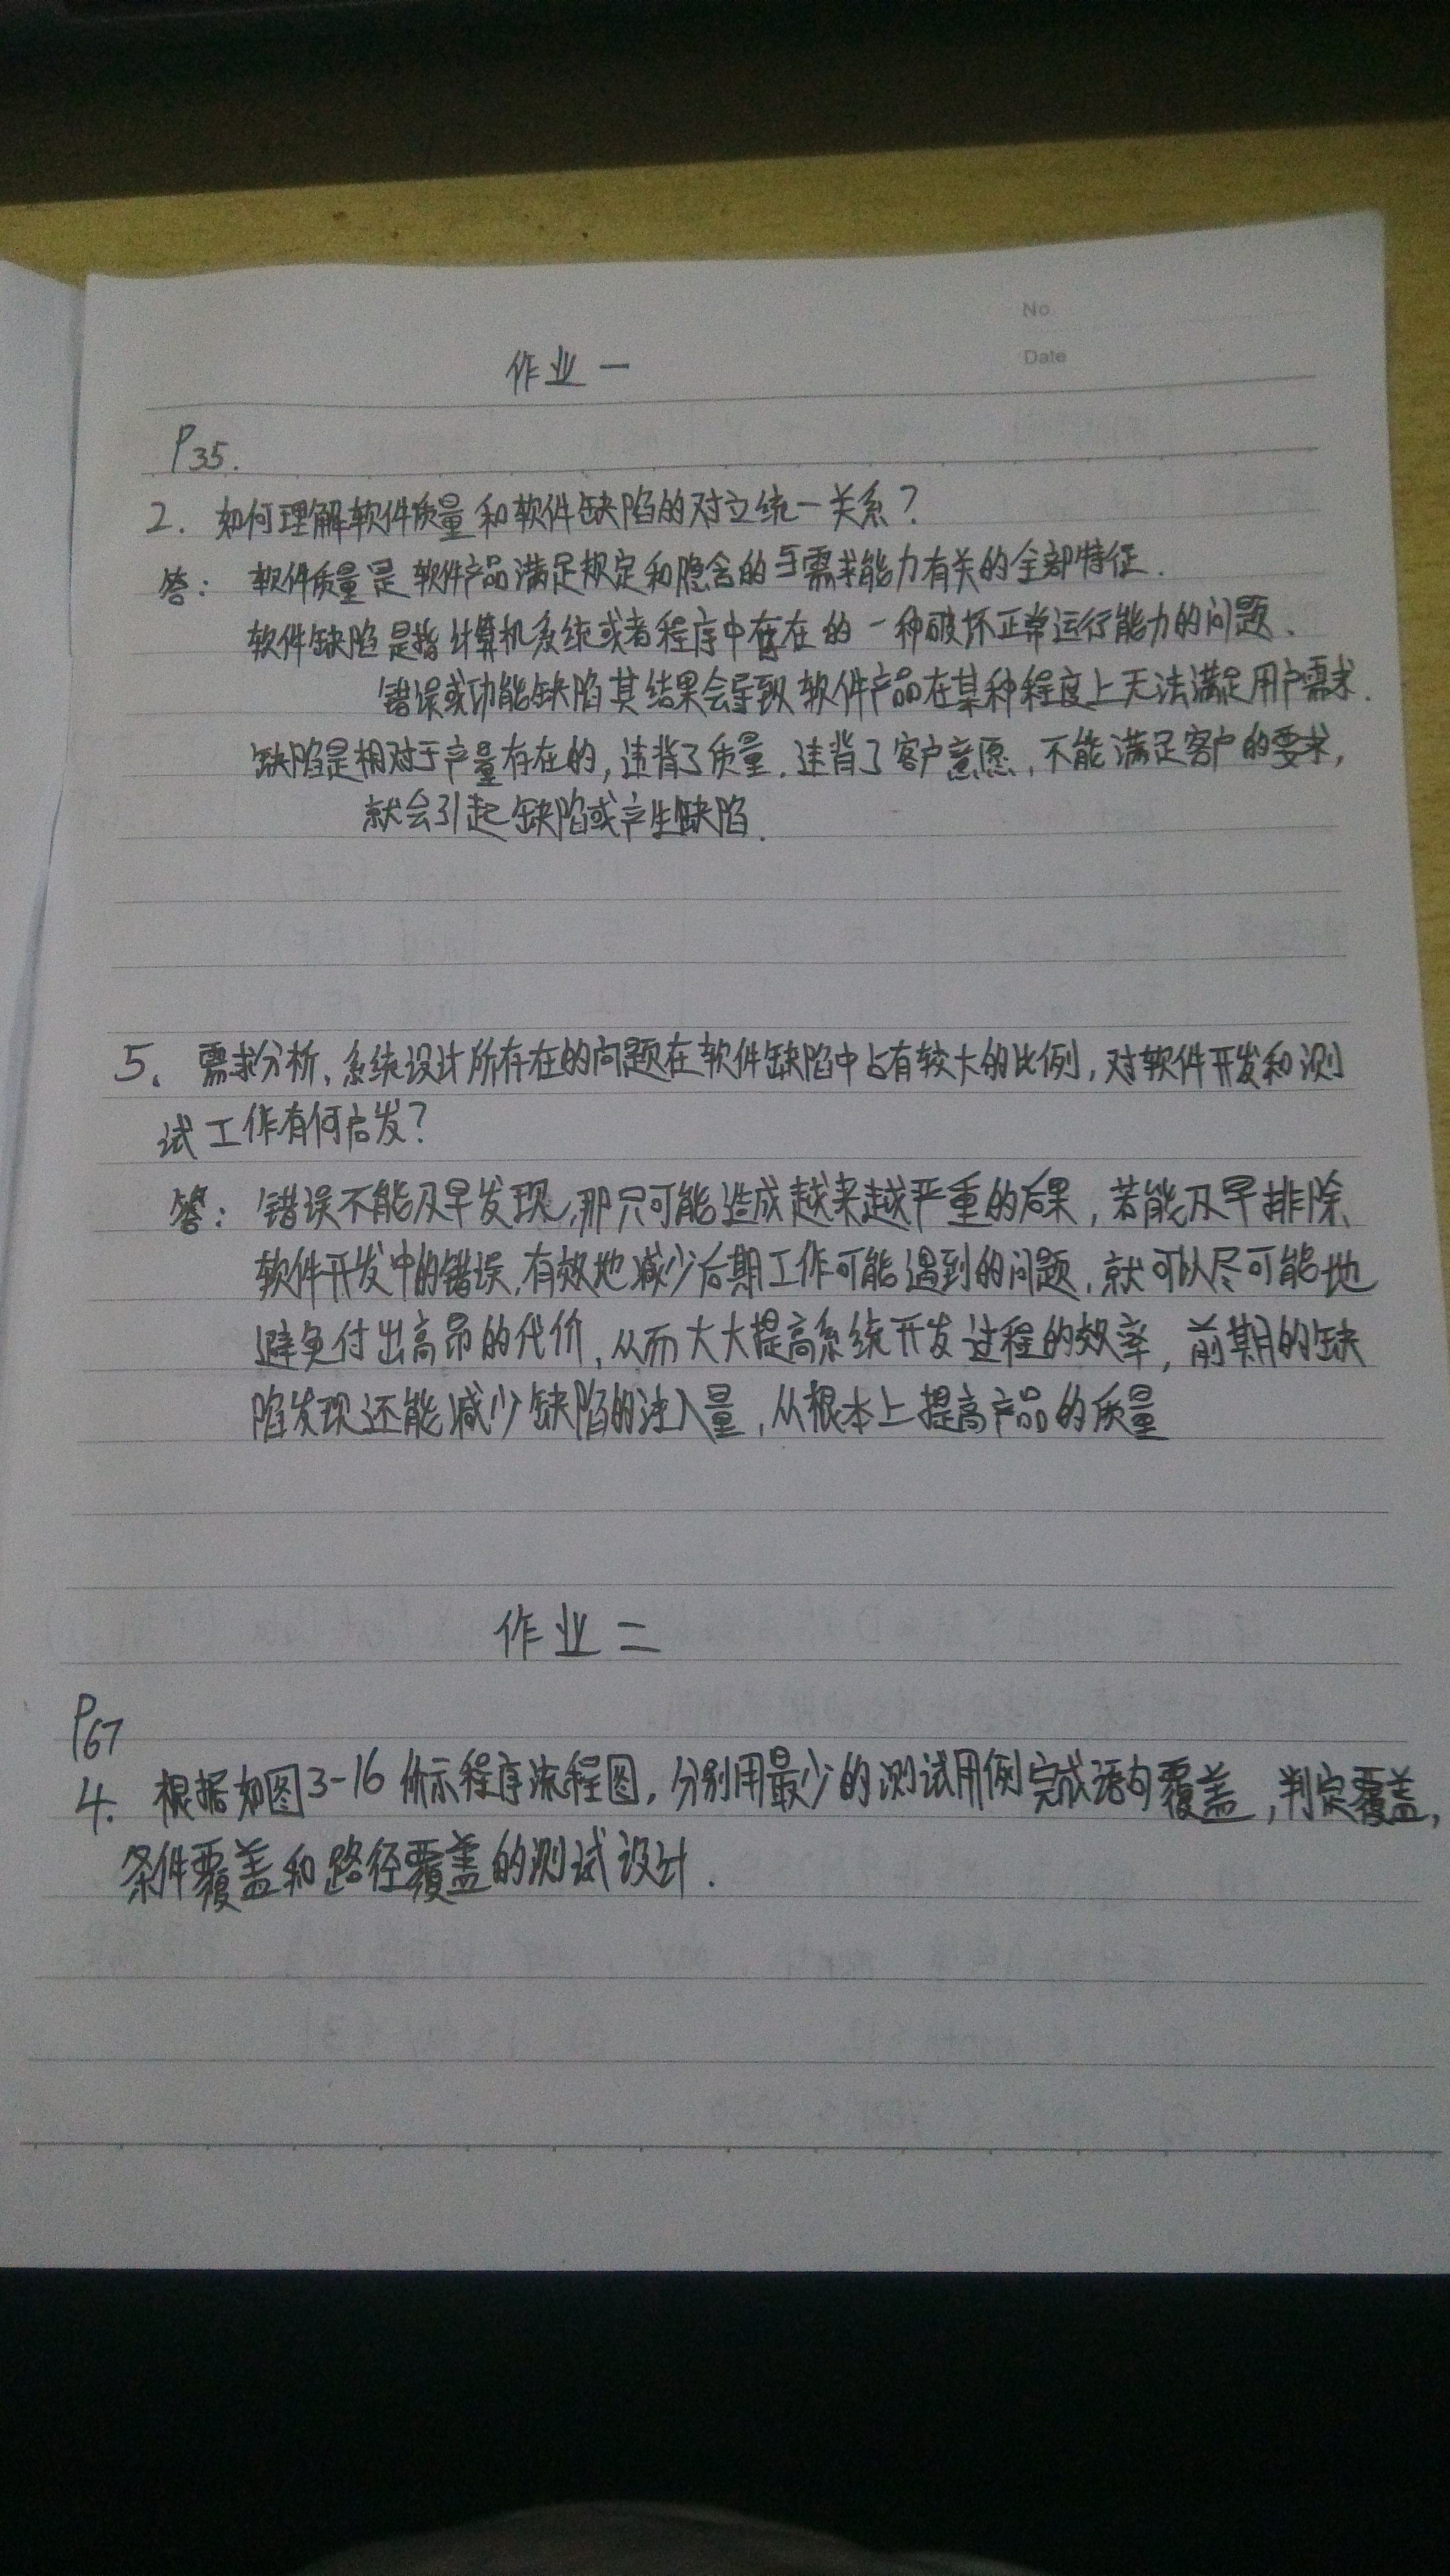 No
Date
作业一
P35.
2. 如何理解软件质量和软件缺陷的对立统一关系?
答: 软件质量是软件产品满足规定和隐含的与需求能力有关的全部特征.
软件缺陷是指计算机系统或者程序中存在的一种破坏正常运行能力的问题、
错误或功能缺陷其结果会导致软件产品在某种程度上无法满足用户需求.
缺陷是相对于产量存在的,违背了质量.违背了客户意愿,不能满足客户的要求,
就会引起缺陷或产生缺陷.
5、需求分析、系统设计所存在的问题在软件缺陷中占有较大的比例,对软件开发和测
试工作有何启发?
答: 错误不能及早发现,那只可能造成越来越严重的后果,若能及早排除
软件开发中的错误,有效地减少后期工作可能遇到的问题,就可以尽可能地
避免付出高昂的代价,从而大大提高系统开发过程的效率,前期的缺
陷发现还能减少缺陷的注入量,从根本上提高产品的质量
作业二
P67
4. 根据如图3-16所示程序流程图,分别用最少的测试用例完成语句覆盖,判定覆盖,
条件覆盖和路径覆盖的测试设计.